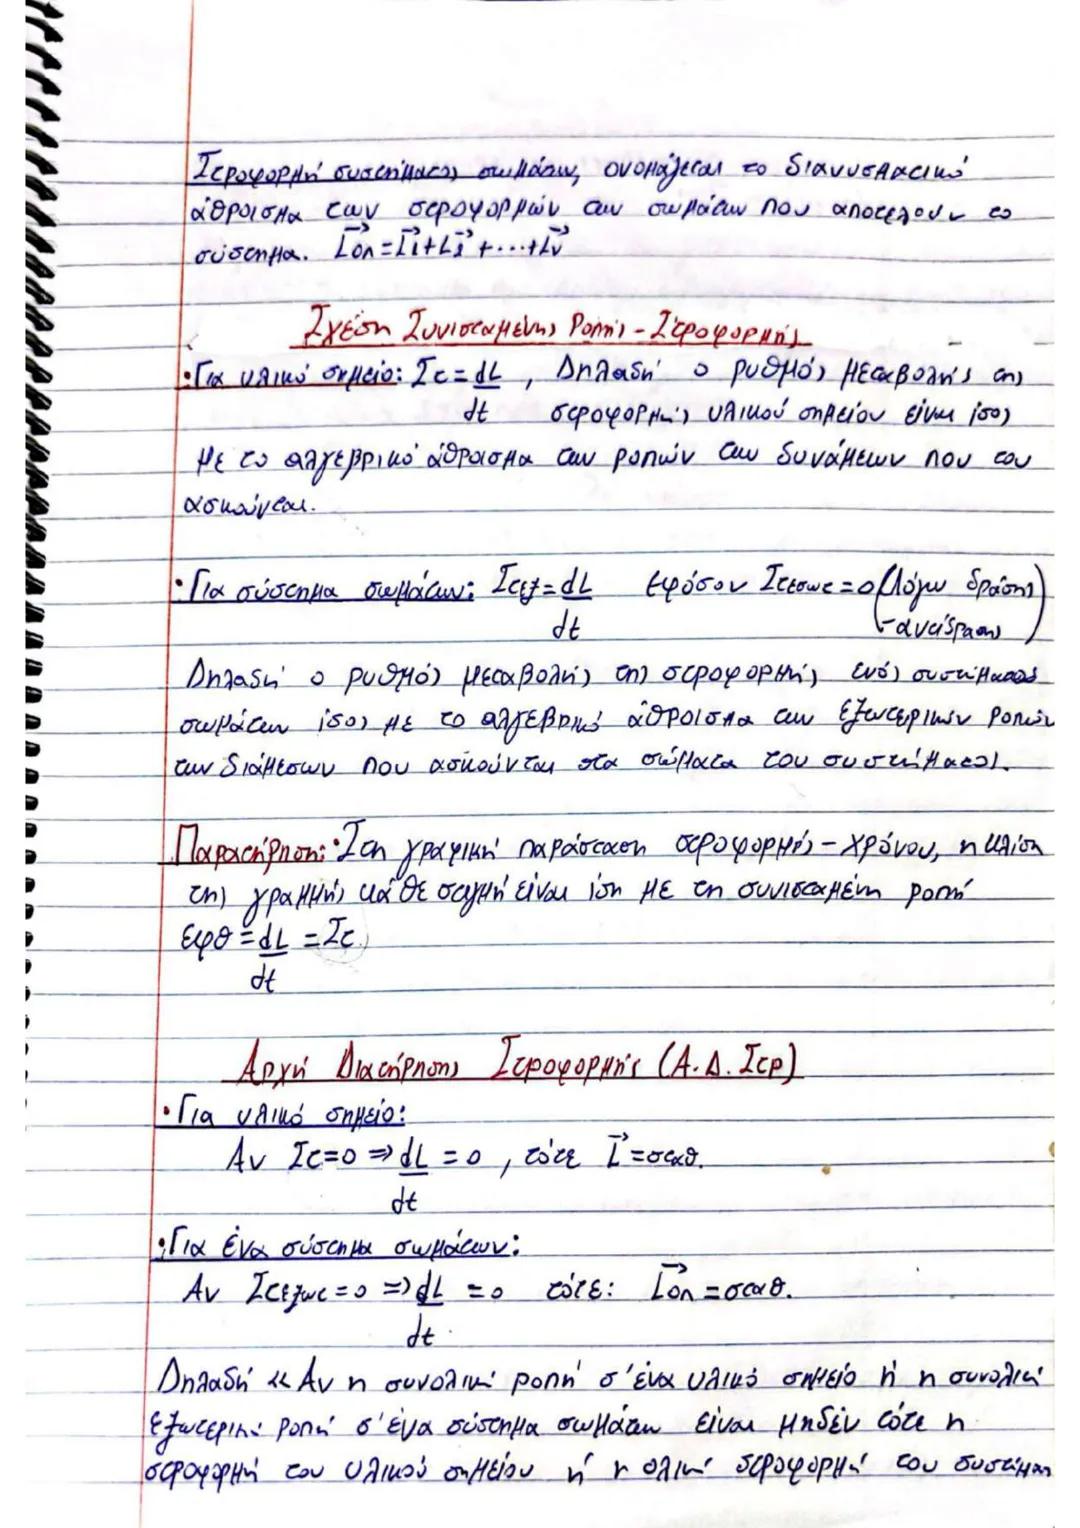 Στροφορμή συστήματος σωμάτων, ονομάζεται το διανυσματικό
άθροισμα των στροφορμών των σωμάτων που αποτελούν το
σύστημα. L⃗ολ = L⃗1 + L⃗2 + ... + L⃗ν
Σχέση Συνισταμένης Ροπής - Στροφορμής
• Για υλικό σημείο: Στ = dL/dt, Δηλαδή ο ρυθμός μεταβολής της
στροφορμής υλικού σημείου είναι ίσος
με το αλγεβρικό άθροισμα των ροπών των δυνάμεων που του
ασκούνται.
• Για σύστημα σωμάτων: Στεξ = dL/dt Εφόσον Στεσωτ = 0 (λόγω δράσης
-αντίδρασης)
Δηλαδή ο ρυθμός μεταβολής της στροφορμής ενός συστήματος
σωμάτων ίσος με το αλγεβρικό άθροισμα των εξωτερικών ροπών
των διάμεσων που ασκούνται στα σώματα του συστήματος.
Παρατήρηση: • Στη γραφική παράσταση στροφορμής - χρόνου, η κλίση
της γραμμής κάθε στιγμή είναι ίση με τη συνισταμένη ροπή
εφθ = dL/dt = Στ
Αρχή Διατήρησης Στροφορμής (Α.Δ.Στρ)
• Για υλικό σημείο:
Αν Στ=0 ⇒ dL/dt = 0, τότε L⃗ = σταθ.
• Για ένα σύστημα σωμάτων:
Αν Στεξωτ = 0 ⇒ dL/dt = 0 τότε: L⃗ολ = σταθ.
Δηλαδή << Αν η συνολική ροπή σ' ένα υλικό σημείο ή η συνολική
εξωτερική ροπή σ' ένα σύστημα σωμάτων είναι μηδέν τότε η
στροφορμή του υλικού σημείου ή η ολική στροφορμή του